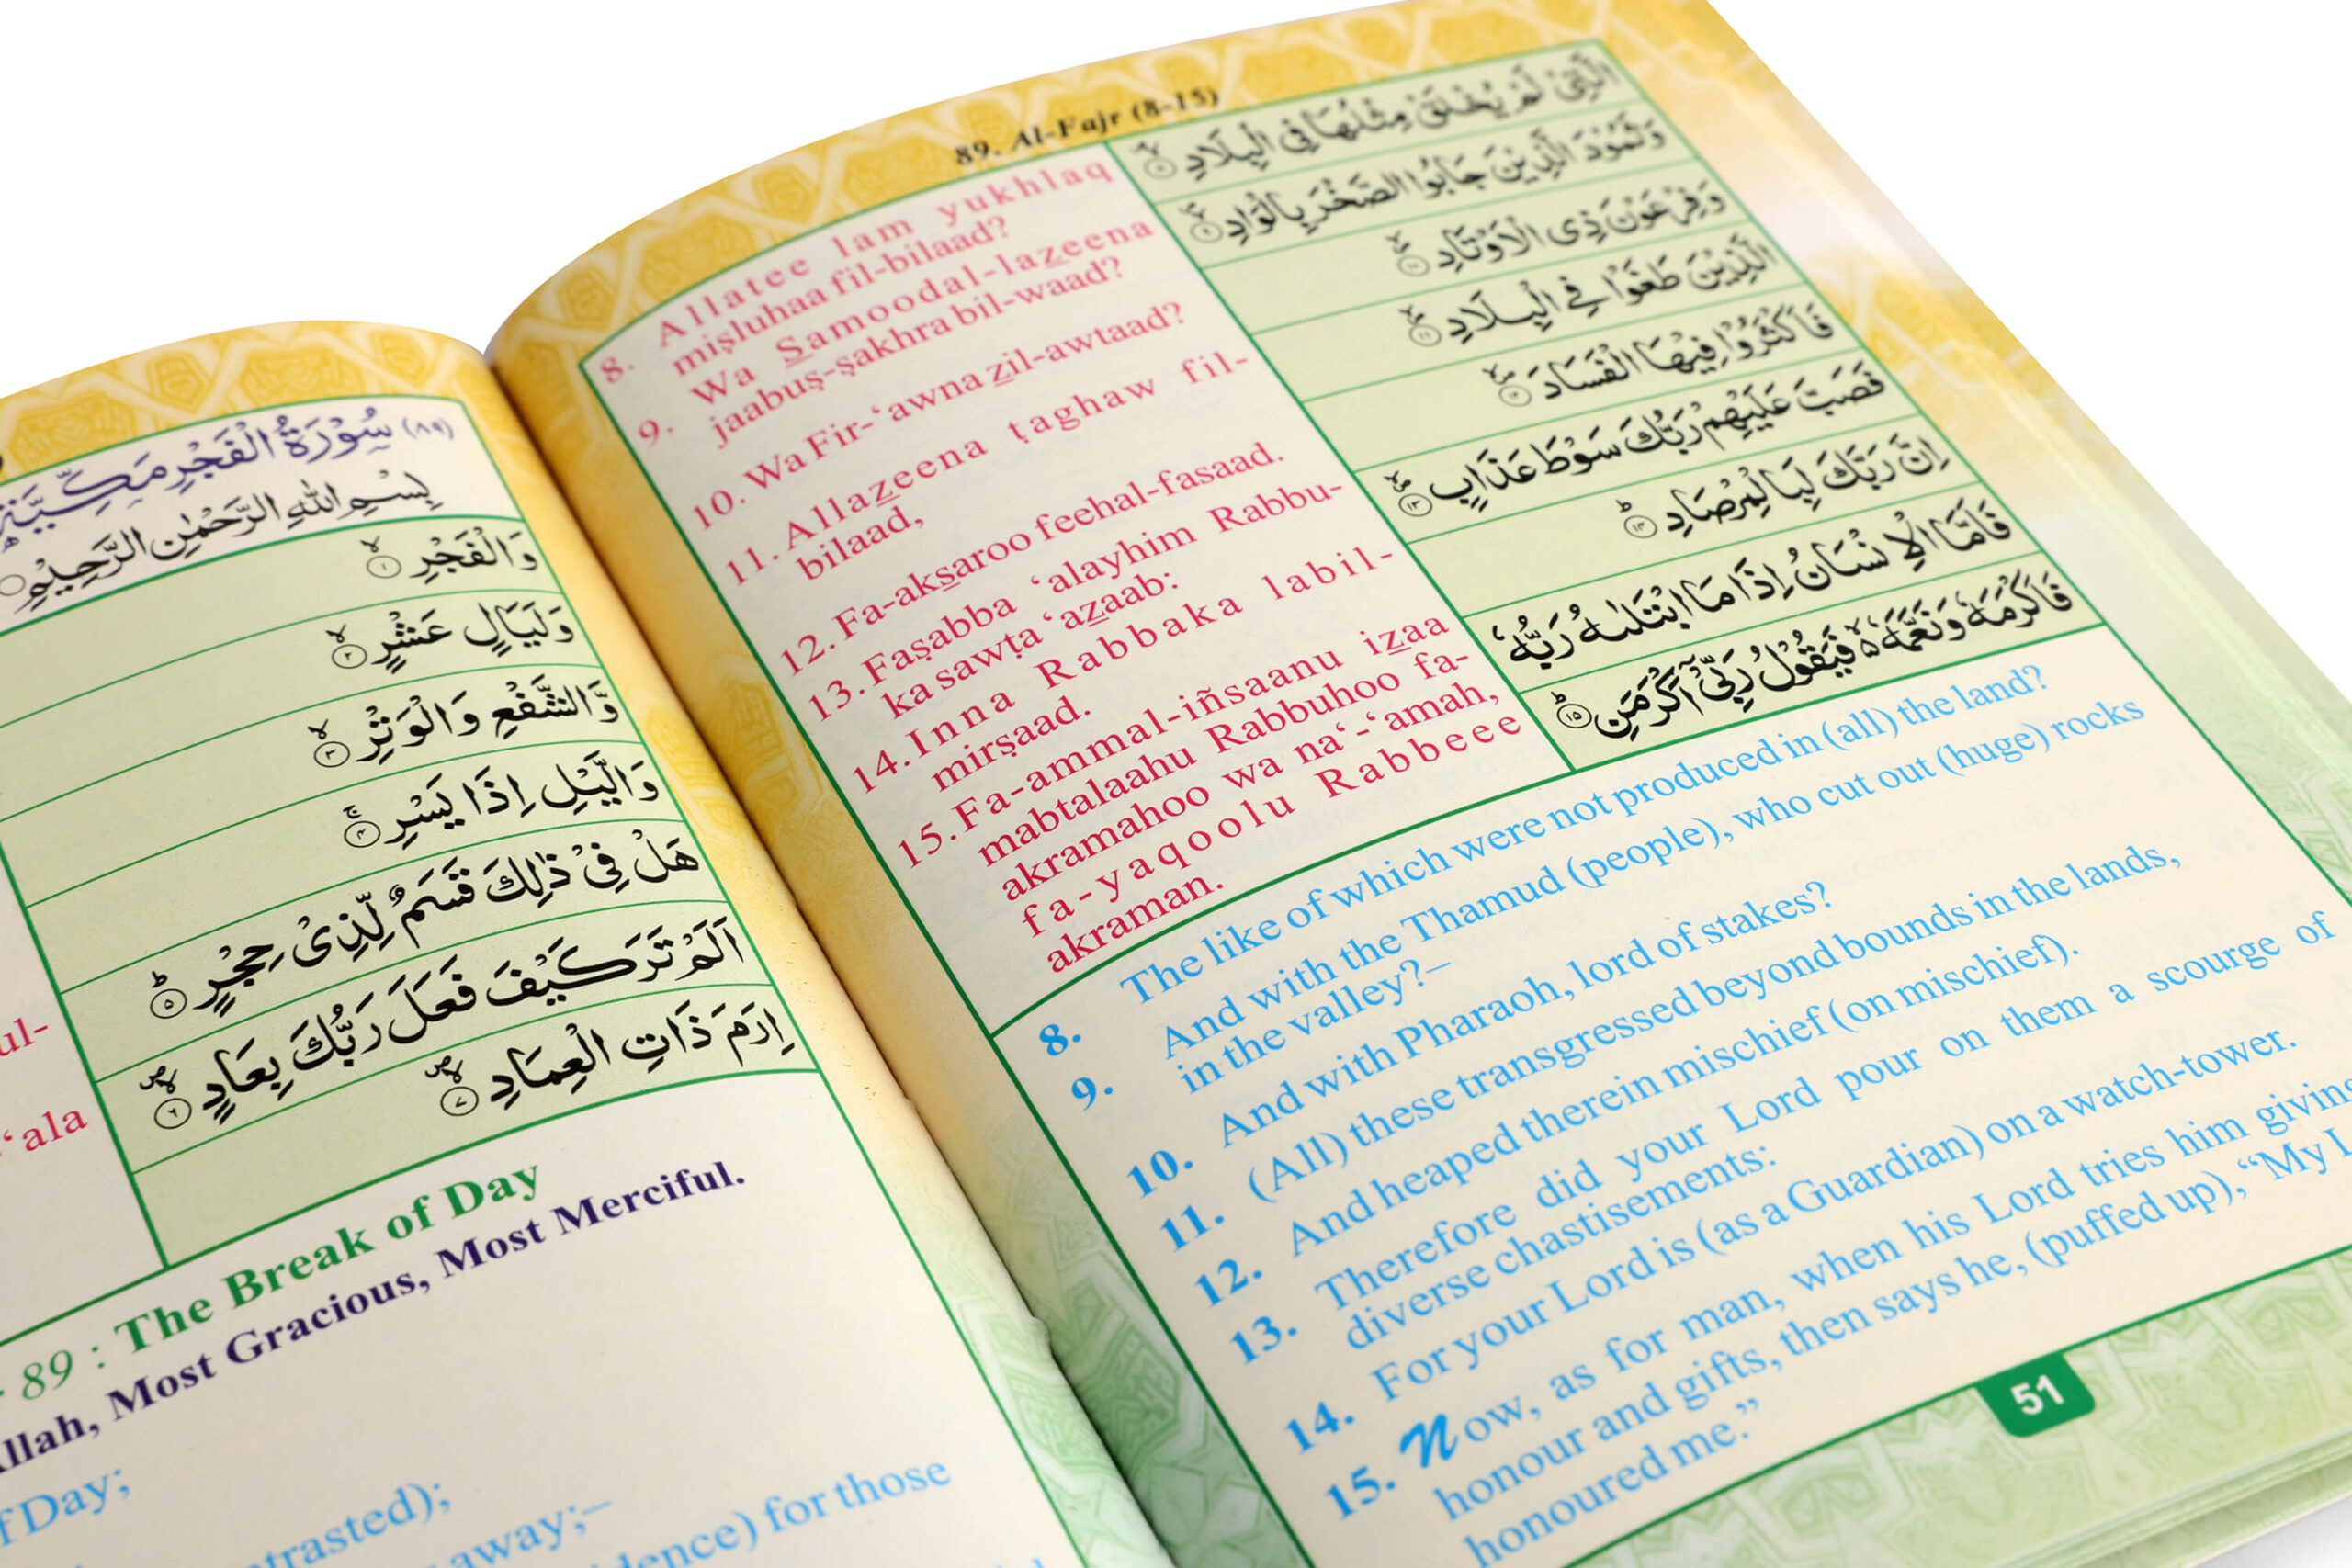 سُوْرَةُ الْفَجْرِ مَكِّيَّةٌ (٨٩)
بِسْمِ اللّٰهِ الرَّحْمٰنِ الرَّحِيْمِ
وَالْفَجْرِ ۙ‏ ١
وَلَيَالٍ عَشْرٍ ۙ‏ ٢
وَّالشَّفْعِ وَالْوَتْرِ ۙ‏ ٣
وَالَّيْلِ اِذَا يَسْرِ ۚ‏ ٤
هَلْ فِىْ ذٰلِكَ قَسَمٌ لِّذِىْ حِجْرٍ ؕ‏ ٥
اَلَمْ تَرَ كَيْفَ فَعَلَ رَبُّكَ بِعَادٍ ۙ‏ ٦
اِرَمَ ذَاتِ الْعِمَادِ ۙ‏ ٧
ul-
‘ala
89 : The Break of Day
Allah, Most Gracious, Most Merciful.
f Day;
trasted);
away;–
dence) for those
89. Al-Fajr (8-15)
الَّتِىْ لَمْ يُخْلَقْ مِثْلُهَا فِى الْبِلَادِ ۙ‏ ٨
وَثَمُوْدَ الَّذِيْنَ جَابُوا الصَّخْرَ بِالْوَادِ ۙ‏ ٩
وَفِرْعَوْنَ ذِى الْاَوْتَادِ ۙ‏ ١٠
الَّذِيْنَ طَغَوْا فِى الْبِلَادِ ۙ‏ ١١
فَاَكْثَرُوْا فِيْهَا الْفَسَادَ ۙ‏ ١٢
فَصَبَّ عَلَيْهِمْ رَبُّكَ سَوْطَ عَذَابٍ ۙ‏ ١٣
اِنَّ رَبَّكَ لَبِالْمِرْصَادِ ؕ‏ ١٤
فَاَمَّا الْاِنْسَانُ اِذَا مَا ابْتَلٰىهُ رَبُّهٗ
فَاَكْرَمَهٗ وَنَعَّمَهٗ ۙ فَيَقُوْلُ رَبِّىْۤ اَكْرَمَنِ ؕ‏ ١٥
8. Allatee lam yukhlaq
miṣluhaa fil-bilaad?
9. Wa Samoodal-lazeena
jaabuṣ-ṣakhra bil-waad?
10. Wa Fir-‘awna zil-awtaad?
11. Allazeena ṭaghaw fil-
bilaad,
12. Fa-aksaroo feehal-fasaad.
13. Faṣabba ‘alayhim Rabbu-
ka sawṭa ‘azaab:
14. Inna Rabbaka labil-
mirṣaad.
15. Fa-ammal-iñsaanu izaa
mabtalaahu Rabbuhoo fa-
akramahoo wa na‘-‘amah,
fa-yaqoolu Rabbeee
akraman.
8. The like of which were not produced in (all) the land?
9. And with the Thamud (people), who cut out (huge) rocks
in the valley?–
10. And with Pharaoh, lord of stakes?
11. (All) these transgressed beyond bounds in the lands,
12. And heaped therein mischief (on mischief).
13. Therefore did your Lord pour on them a scourge of
diverse chastisements:
14. For your Lord is (as a Guardian) on a watch-tower.
15. Now, as for man, when his Lord tries him giving
honour and gifts, then says he, (puffed up), “My L
honoured me.”
51